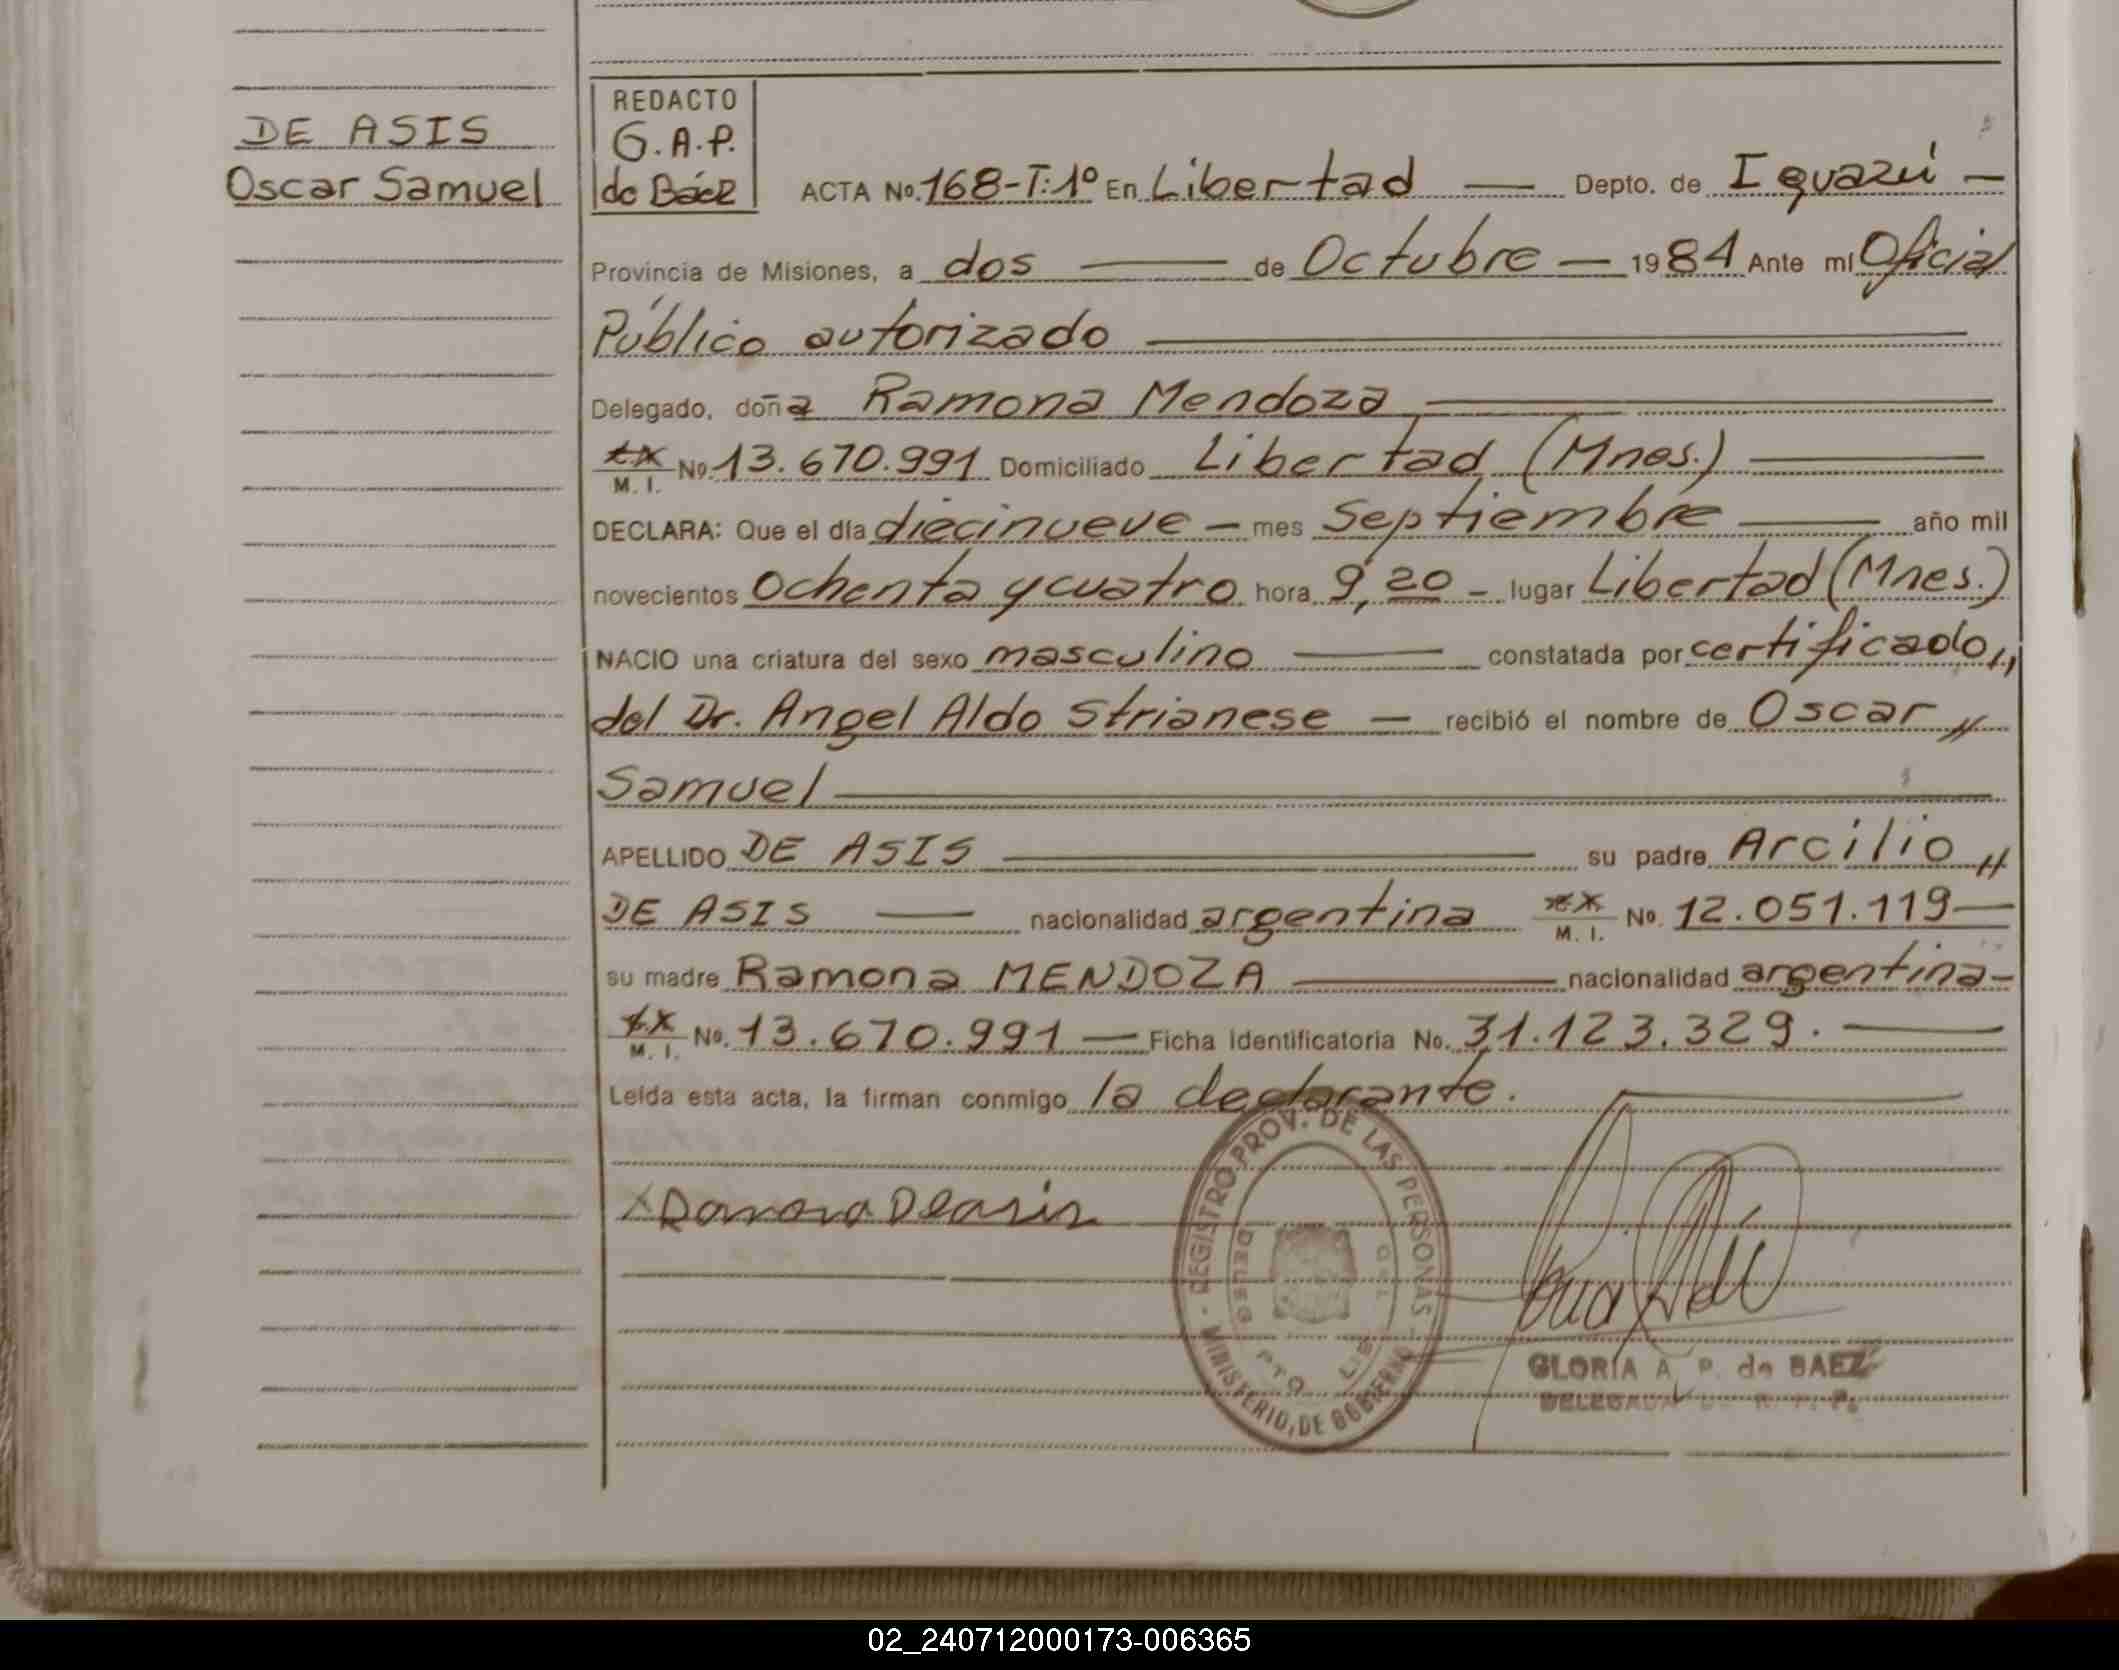 DE ASIS
Oscar Samuel
REDACTO
G.A.P.
de Báez
ACTA No. 168-T:1º En Libertad — Depto. de Iguazú —
Provincia de Misiones, a dos — de Octubre — 1984 Ante mí Oficial
Público autorizado —
Delegado, doña Ramona Mendoza —
M. I. No. 13.670.991 Domiciliado Libertad (Mnes.) —
DECLARA: Que el día diecinueve — mes Septiembre — año mil
novecientos Ochenta y cuatro hora 9,20 - lugar Libertad (Mnes.)
NACIO una criatura del sexo masculino — constatada por certificado,,
del Dr. Angel Aldo Strianese — recibió el nombre de Oscar „
Samuel —
APELLIDO DE ASIS — su padre Arcilio „
DE ASIS — nacionalidad argentina M. I. No. 12.051.119 —
su madre Ramona MENDOZA — nacionalidad argentina -
M. I. No. 13.670.991 — Ficha Identificatoria No. 31.123.329. —
Leída esta acta, la firman conmigo la declarante. —
REGISTRO PROV. DE LAS PERSONAS
MINISTERIO DE GOBIERNO
GLORIA A. P. de BAEZ
DELEGADA
02_240712000173-006365